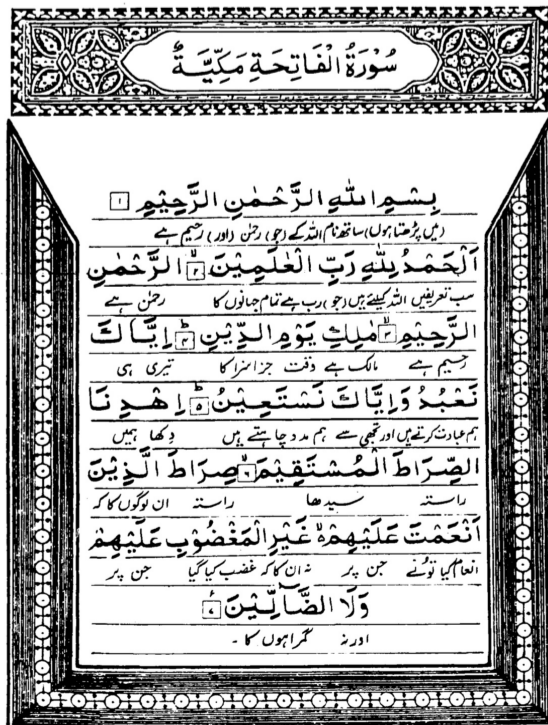 سُوْرَةُ الْفَاتِحَةِ مَكِّيَّةٌ
بِسْمِ اللهِ الرَّحْمٰنِ الرَّحِيْمِ ١
(میں پڑھتا ہوں) ساتھ نام اللہ کے (جو) رحمٰن (اور) رحیم ہے
اَلْحَمْدُ لِلّٰهِ رَبِّ الْعٰلَمِيْنَ ۙ ٢ الرَّحْمٰنِ
سب تعریفیں اللہ کیلئے ہیں (جو) رب ہے تمام جہانوں کا رحمٰن ہے
الرَّحِيْمِ ۙ ٣ مٰلِكِ يَوْمِ الدِّيْنِ ؕ ٤ اِيَّاكَ
رحیم ہے مالک ہے وقت جزا سزا کا تیری ہی
نَعْبُدُ وَاِيَّاكَ نَسْتَعِيْنُ ؕ ٥ اِهْدِنَا
ہم عبادت کرتے ہیں اور تجھی سے ہم مدد چاہتے ہیں دکھا ہمیں
الصِّرَاطَ الْمُسْتَقِيْمَ ۙ ٦ صِرَاطَ الَّذِيْنَ
راستہ سیدھا راستہ ان لوگوں کا کہ
اَنْعَمْتَ عَلَيْهِمْ ۙ غَيْرِ الْمَغْضُوْبِ عَلَيْهِمْ
انعام کیا تونے جن پر نہ ان کا کہ غضب کیا گیا جن پر
وَلَا الضَّآلِّيْنَ ٧
اور نہ گمراہوں کا ۔